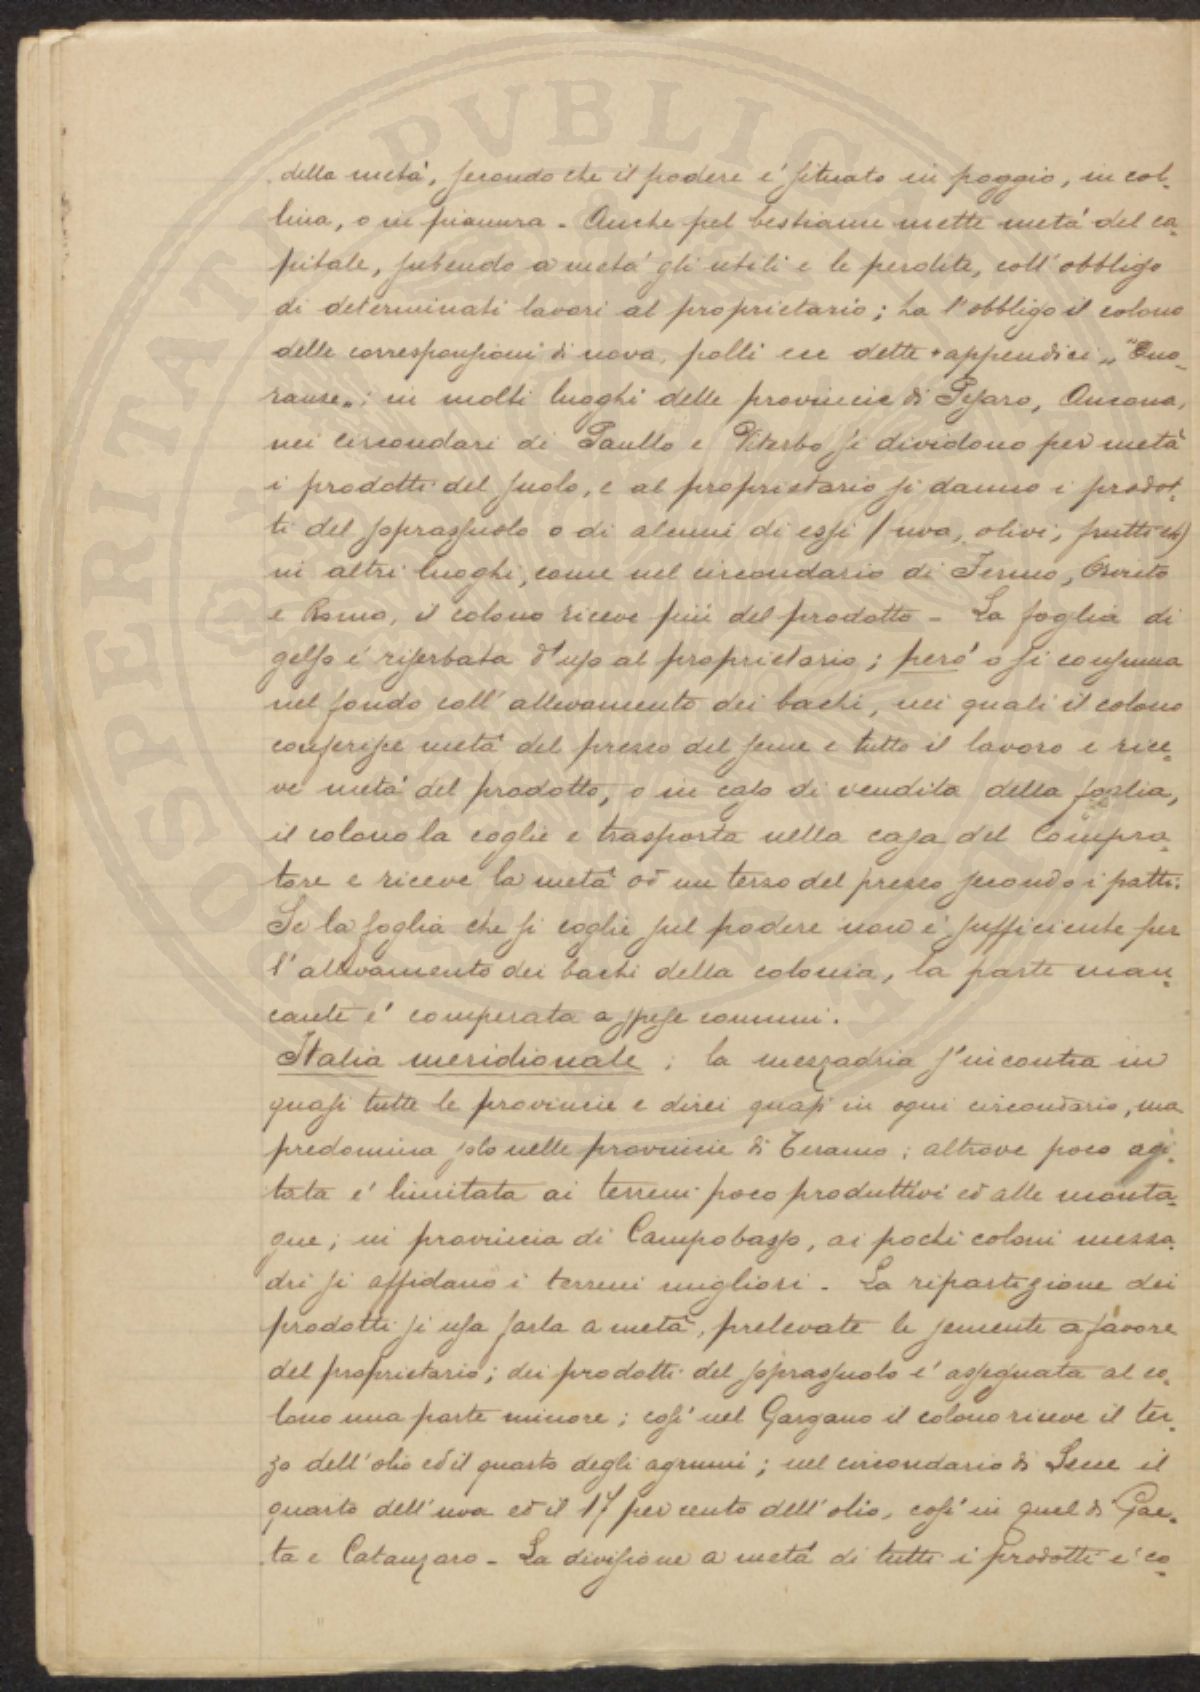 della metá, secondo che il podere é situato in poggio, in col-
lina, o in pianura - Anche pel bestiame mette metá del ca-
pitale, subendo a metá gli utili e le perdite, coll'obbligo
di determinati lavori al proprietario; ha l'obbligo il colono
delle corresponsioni di uova, polli ecc dette "appendici" "Ono-
ranze"; in molti luoghi delle provincie di Pesaro, Ancona,
nei circondari di e Viterbo si dividono per metá
i prodotti del suolo, e al proprietario si danno i prodot-
ti del soprassuolo o di alcuni di essi (uva, olivi, frutti ecc)
in altri luoghi, come nel circondario di Fermo, Orvieto
e Roma, il colono riceve piú del prodotto - La foglia di
gelso é riserbata d'uso al proprietario; peró o si consuma
nel fondo coll'allevamento dei bachi, nei quali il colono
conferisce metá del prezzo del seme e tutto il lavoro e rice-
ve metá del prodotto, o in caso di vendita della foglia,
il colono la coglie e trasporta nella casa del Compra-
tore e riceve la metá od un terzo del prezzo secondo i patti.
Se la foglia che si coglie sul podere non é sufficiente per
l'allevamento dei bachi della colonia, la parte man-
cante é comperata a spese comuni.
Italia meridionale ; la mezzadria s'incontra in
quasi tutte le provincie e direi quasi in ogni circondario, ma
predomina solo nelle provincie di Teramo; altrove poco agi-
tata é limitata ai terreni poco produttivi ed alle monta-
gne; in provincia di Campobasso, ai pochi coloni mezza-
dri si affidano i terreni migliori - La ripartizione dei
prodotti si usa farla a metá, prelevate le semente a favore
del proprietario; dei prodotti del soprassuolo é assegnata al co-
lono una parte minore; cosí nel Gargano il colono riceve il ter-
zo dell'olio ed il quarto degli agrumi; nel circondario di il
quarto dell'uva ed il 17 per cento dell'olio, cosí in quel di Gae-
ta e Catanzaro - La divisione a metá di tutti i prodotti é co-
PROSPERITATI PVBLICAE